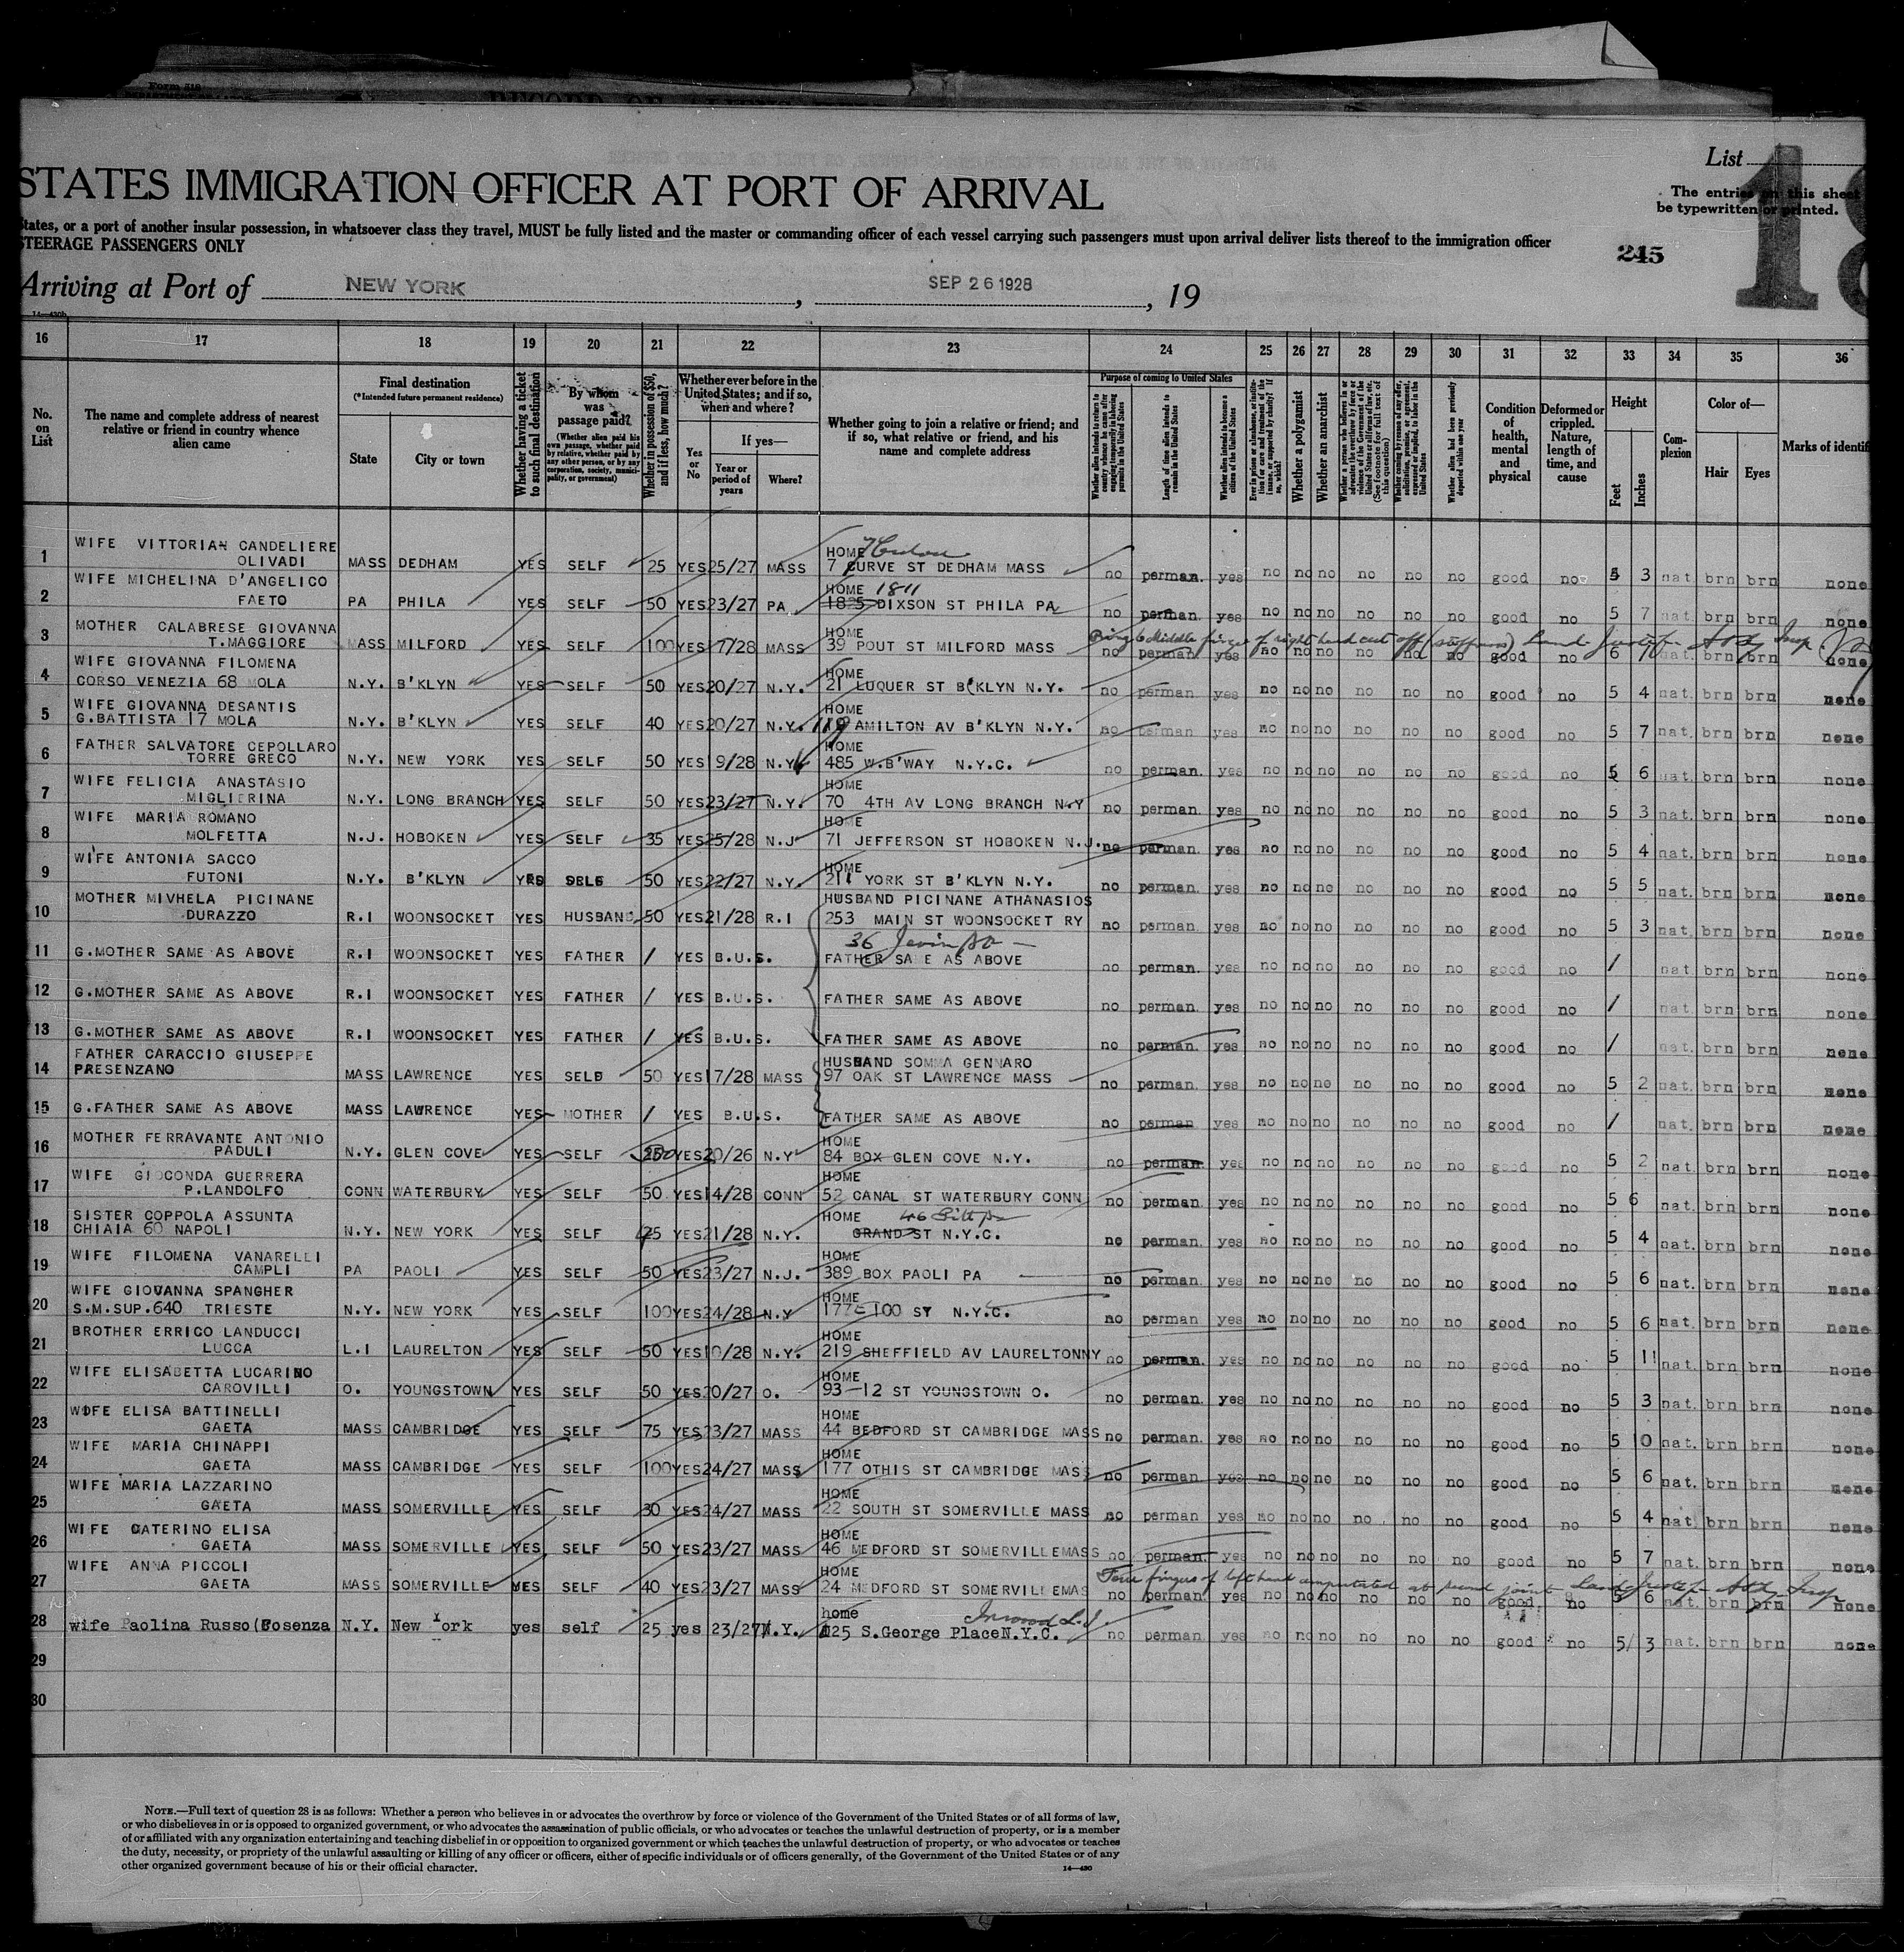 Form 318
RECORD OF ALIENS
STATES IMMIGRATION OFFICER AT PORT OF ARRIVAL
States, or a port of another insular possession, in whatsoever class they travel, MUST be fully listed and the master or commanding officer of each vessel carrying such passengers must upon arrival deliver lists thereof to the immigration officer
STEERAGE PASSENGERS ONLY
List
18
The entries on this sheet
be typewritten or printed.
245
Arriving at Port of NEW YORK, SEP 26 1928, 19
14—430b
16 17 18 19 20 21 22 23 24 25 26 27 28 29 30 31 32 33 34 35 36
No. on List
The name and complete address of nearest relative or friend in country whence alien came
Final destination
(*Intended future permanent residence)
State
City or town
Whether having a ticket to such final destination
By whom was passage paid?
(Whether alien paid his own passage, whether paid by relative, whether paid by any other person, or by any corporation, society, municipality, or government)
Whether in possession of $50, and if less, how much?
Whether ever before in the United States; and if so, when and where?
Yes or No
If yes—
Year or period of years
Where?
Whether going to join a relative or friend; and if so, what relative or friend, and his name and complete address
Purpose of coming to United States
Whether alien intends to return to country whence he came after engaging temporarily in laboring pursuits in the United States
Length of time alien intends to remain in the United States
Whether alien intends to become a citizen of the United States
Ever in prison or almshouse, or institution for care and treatment of the insane, or supported by charity? If so, which?
Whether a polygamist
Whether an anarchist
Whether a person who believes in or advocates the overthrow by force or violence of the Government of the United States or all forms of law, etc. (See footnote for full text of this question)
Whether coming by reason of any offer, solicitation, promise, or agreement, expressed or implied, to labor in the United States
Whether alien had been previously deported within one year
Condition of health, mental and physical
Deformed or crippled. Nature, length of time, and cause
Height
Feet
Inches
Complexion
Color of—
Hair
Eyes
Marks of identif
1 WIFE VITTORIAN CANDELIERE OLIVADI MASS DEDHAM YES SELF 25 YES 25/27 MASS HOME 7 CURVE ST DEDHAM MASS no perman. yes no no no no no no good no 5 3 nat. brn brn none
2 WIFE MICHELINA D'ANGELICO FAETO PA PHILA YES SELF 50 YES 23/27 PA HOME 1811 1825 DIXSON ST PHILA PA no perman. yes no no no no no no good no 5 7 nat. brn brn none
3 MOTHER CALABRESE GIOVANNA T.MAGGIORE MASS MILFORD YES SELF 100 YES 17/28 MASS HOME 39 POUT ST MILFORD MASS no perman. yes no no no no no no good no 6 nat. brn brn none
Ring & Middle finger of right hand cut off
4 WIFE GIOVANNA FILOMENA CORSO VENEZIA 68 MOLA N.Y. B'KLYN YES SELF 50 YES 20/27 N.Y. HOME 21 LUQUER ST B'KLYN N.Y. no perman yes no no no no no no good no 5 4 nat. brn brn none
5 WIFE GIOVANNA DESANTIS G.BATTISTA 17 MOLA N.Y. B'KLYN YES SELF 40 YES 20/27 N.Y. HOME 119 AMILTON AV B'KLYN N.Y. no perman yes no no no no no no good no 5 7 nat. brn brn none
6 FATHER SALVATORE CEPOLLARO TORRE GRECO N.Y. NEW YORK YES SELF 50 YES 19/28 N.Y. HOME 485 W.B'WAY N.Y.C. no perman. yes no no no no no no good no 5 6 nat. brn brn none
7 WIFE FELICIA ANASTASIO MIGLIERINA N.Y. LONG BRANCH YES SELF 50 YES 23/27 N.Y. HOME 70 4TH AV LONG BRANCH N.Y no perman. yes no no no no no no good no 5 3 nat. brn brn none
8 WIFE MARIA ROMANO MOLFETTA N.J. HOBOKEN YES SELF 35 YES 25/28 N.J HOME 71 JEFFERSON ST HOBOKEN N.J. no perman. yes no no no no no no good no 5 4 nat. brn brn none
9 WIFE ANTONIA SACCO FUTONI N.Y. B'KLYN YES SELF 50 YES 22/27 N.Y. HOME 211 YORK ST B'KLYN N.Y. no perman. yes no no no no no no good no 5 5 nat. brn brn none
10 MOTHER MIVHELA PICINANE DURAZZO R.I WOONSOCKET YES HUSBAND 50 YES 21/28 R.I HUSBAND PICINANE ATHANASIOS 253 MAIN ST WOONSOCKET RY no perman. yes no no no no no no good no 5 3 nat. brn brn none
11 G.MOTHER SAME AS ABOVE R.I WOONSOCKET YES FATHER / YES B.U.S. 36 FATHER SA E AS ABOVE no perman. yes no no no no no no good no / nat. brn brn none
12 G.MOTHER SAME AS ABOVE R.I WOONSOCKET YES FATHER / YES B.U.S. FATHER SAME AS ABOVE no perman. yes no no no no no no good no / nat. brn brn none
13 G.MOTHER SAME AS ABOVE R.I WOONSOCKET YES FATHER / YES B.U.S. FATHER SAME AS ABOVE no perman. yes no no no no no no good no / nat. brn brn none
14 FATHER CARACCIO GIUSEPPE PRESENZANO MASS LAWRENCE YES SELF 50 YES 17/28 MASS HUSBAND SOMMA GENNARO 97 OAK ST LAWRENCE MASS no perman. yes no no no no no no good no 5 2 nat. brn brn none
15 G.FATHER SAME AS ABOVE MASS LAWRENCE YES MOTHER / YES B.U.S. FATHER SAME AS ABOVE no perman yes no no no no no no good no / nat. brn brn none
16 MOTHER FERRAVANTE ANTONIO PADULI N.Y. GLEN COVE YES SELF YES 20/26 N.Y HOME 84 BOX GLEN COVE N.Y. no perman. yes no no no no no no good no 5 2 nat. brn brn none
17 WIFE GIOCONDA GUERRERA P.LANDOLFO CONN WATERBURY YES SELF 50 YES 14/28 CONN HOME 52 CANAL ST WATERBURY CONN no perman. yes no no no no no no good no 5 6 nat. brn brn none
18 SISTER COPPOLA ASSUNTA CHIAIA 60 NAPOLI N.Y. NEW YORK YES SELF 25 YES 21/28 N.Y. HOME 46 GRAND ST N.Y.C. no perman. yes no no no no no no good no 5 4 nat. brn brn none
19 WIFE FILOMENA VANARELLI CAMPLI PA PAOLI YES SELF 50 YES 23/27 N.J. HOME 389 BOX PAOLI PA no perman yes no no no no no no good no 5 6 nat. brn brn none
20 WIFE GIOVANNA SPANGHER S.M.SUP.640 TRIESTE N.Y. NEW YORK YES SELF 100 YES 24/28 N.Y HOME 177 E 100 ST N.Y.C. no perman yes no no no no no no good no 5 6 nat. brn brn none
21 BROTHER ERRICO LANDUCCI LUCCA L.I LAURELTON YES SELF 50 YES 10/28 N.Y. HOME 219 SHEFFIELD AV LAURELTONNY no perman. yes no no no no no no good no 5 11 nat. brn brn none
22 WIFE ELISABETTA LUCARINO CAROVILLI O. YOUNGSTOWN YES SELF 50 YES 20/27 O. HOME 93—12 ST YOUNGSTOWN O. no perman. yes no no no no no no good no 5 3 nat. brn brn none
23 WIFE ELISA BATTINELLI GAETA MASS CAMBRIDGE YES SELF 75 YES 23/27 MASS HOME 44 BEDFORD ST CAMBRIDGE MASS no perman. yes no no no no no no good no 5 10 nat. brn brn none
24 WIFE MARIA CHINAPPI GAETA MASS CAMBRIDGE YES SELF 100 YES 24/27 MASS HOME 177 OTHIS ST CAMBRIDGE MASS no perman yes no no no no no no good no 5 6 nat. brn brn none
25 WIFE MARIA LAZZARINO GAETA MASS SOMERVILLE YES SELF 30 YES 24/27 MASS HOME 22 SOUTH ST SOMERVILLE MASS no perman yes no no no no no no good no 5 4 nat. brn brn none
26 WIFE CATERINO ELISA GAETA MASS SOMERVILLE YES SELF 50 YES 23/27 MASS HOME 46 MEDFORD ST SOMERVILLEMASS no perman. yes no no no no no no good no 5 7 nat. brn brn none
27 WIFE ANNA PICCOLI GAETA MASS SOMERVILLE YES SELF 40 YES 23/27 MASS HOME 24 MEDFORD ST SOMERVILLEMAS no perman. yes no no no no no no good no 5 6 nat. brn brn none
fingers of left hand amputated at second joint
28 wife Paolina Russo(Cosenza N.Y. New York yes self 25 yes 23/27 N.Y. home Inwood L.I 125 S.George PlaceN.Y.C. no perman yes no no no no no no good no 5/ 3 nat. brn brn none
29
30
NOTE.—Full text of question 28 is as follows: Whether a person who believes in or advocates the overthrow by force or violence of the Government of the United States or of all forms of law,
or who disbelieves in or is opposed to organized government, or who advocates the assassination of public officials, or who advocates or teaches the unlawful destruction of property, or is a member
of or affiliated with any organization entertaining and teaching disbelief in or opposition to organized government or which teaches the unlawful destruction of property, or who advocates or teaches
the duty, necessity, or propriety of the unlawful assaulting or killing of any officer or officers, either of specific individuals or of officers generally, of the Government of the United States or of any
other organized government because of his or their official character.
14—430